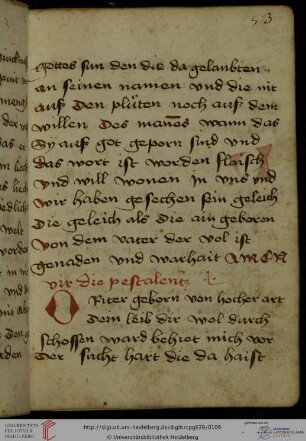 53
gottes sun den die da gelaubten
an seinen namen vnd die nit
auß den plůten noch auß dem
willen des mannes wann das
dÿ auß got geporn sind vnd
das wort ist worden flaisch
vnd will wonen in vns vnd
wir haben gesechen sein geleich
die geleich als die aingeboren
von dem vater der vol ist
genaden vnd warhait AMEN
vir die pestalentz
O Riter geborn von hocher art
dein leib dir wol durch
schossen ward behiet mich vor
der sucht hart die da haist
UNIVERSITÄTS-
BIBLIOTHEK
HEIDELBERG
http://digi.ub.uni-heidelberg.de/diglit/cpg639/0109
© Universitätsbibliothek Heidelberg